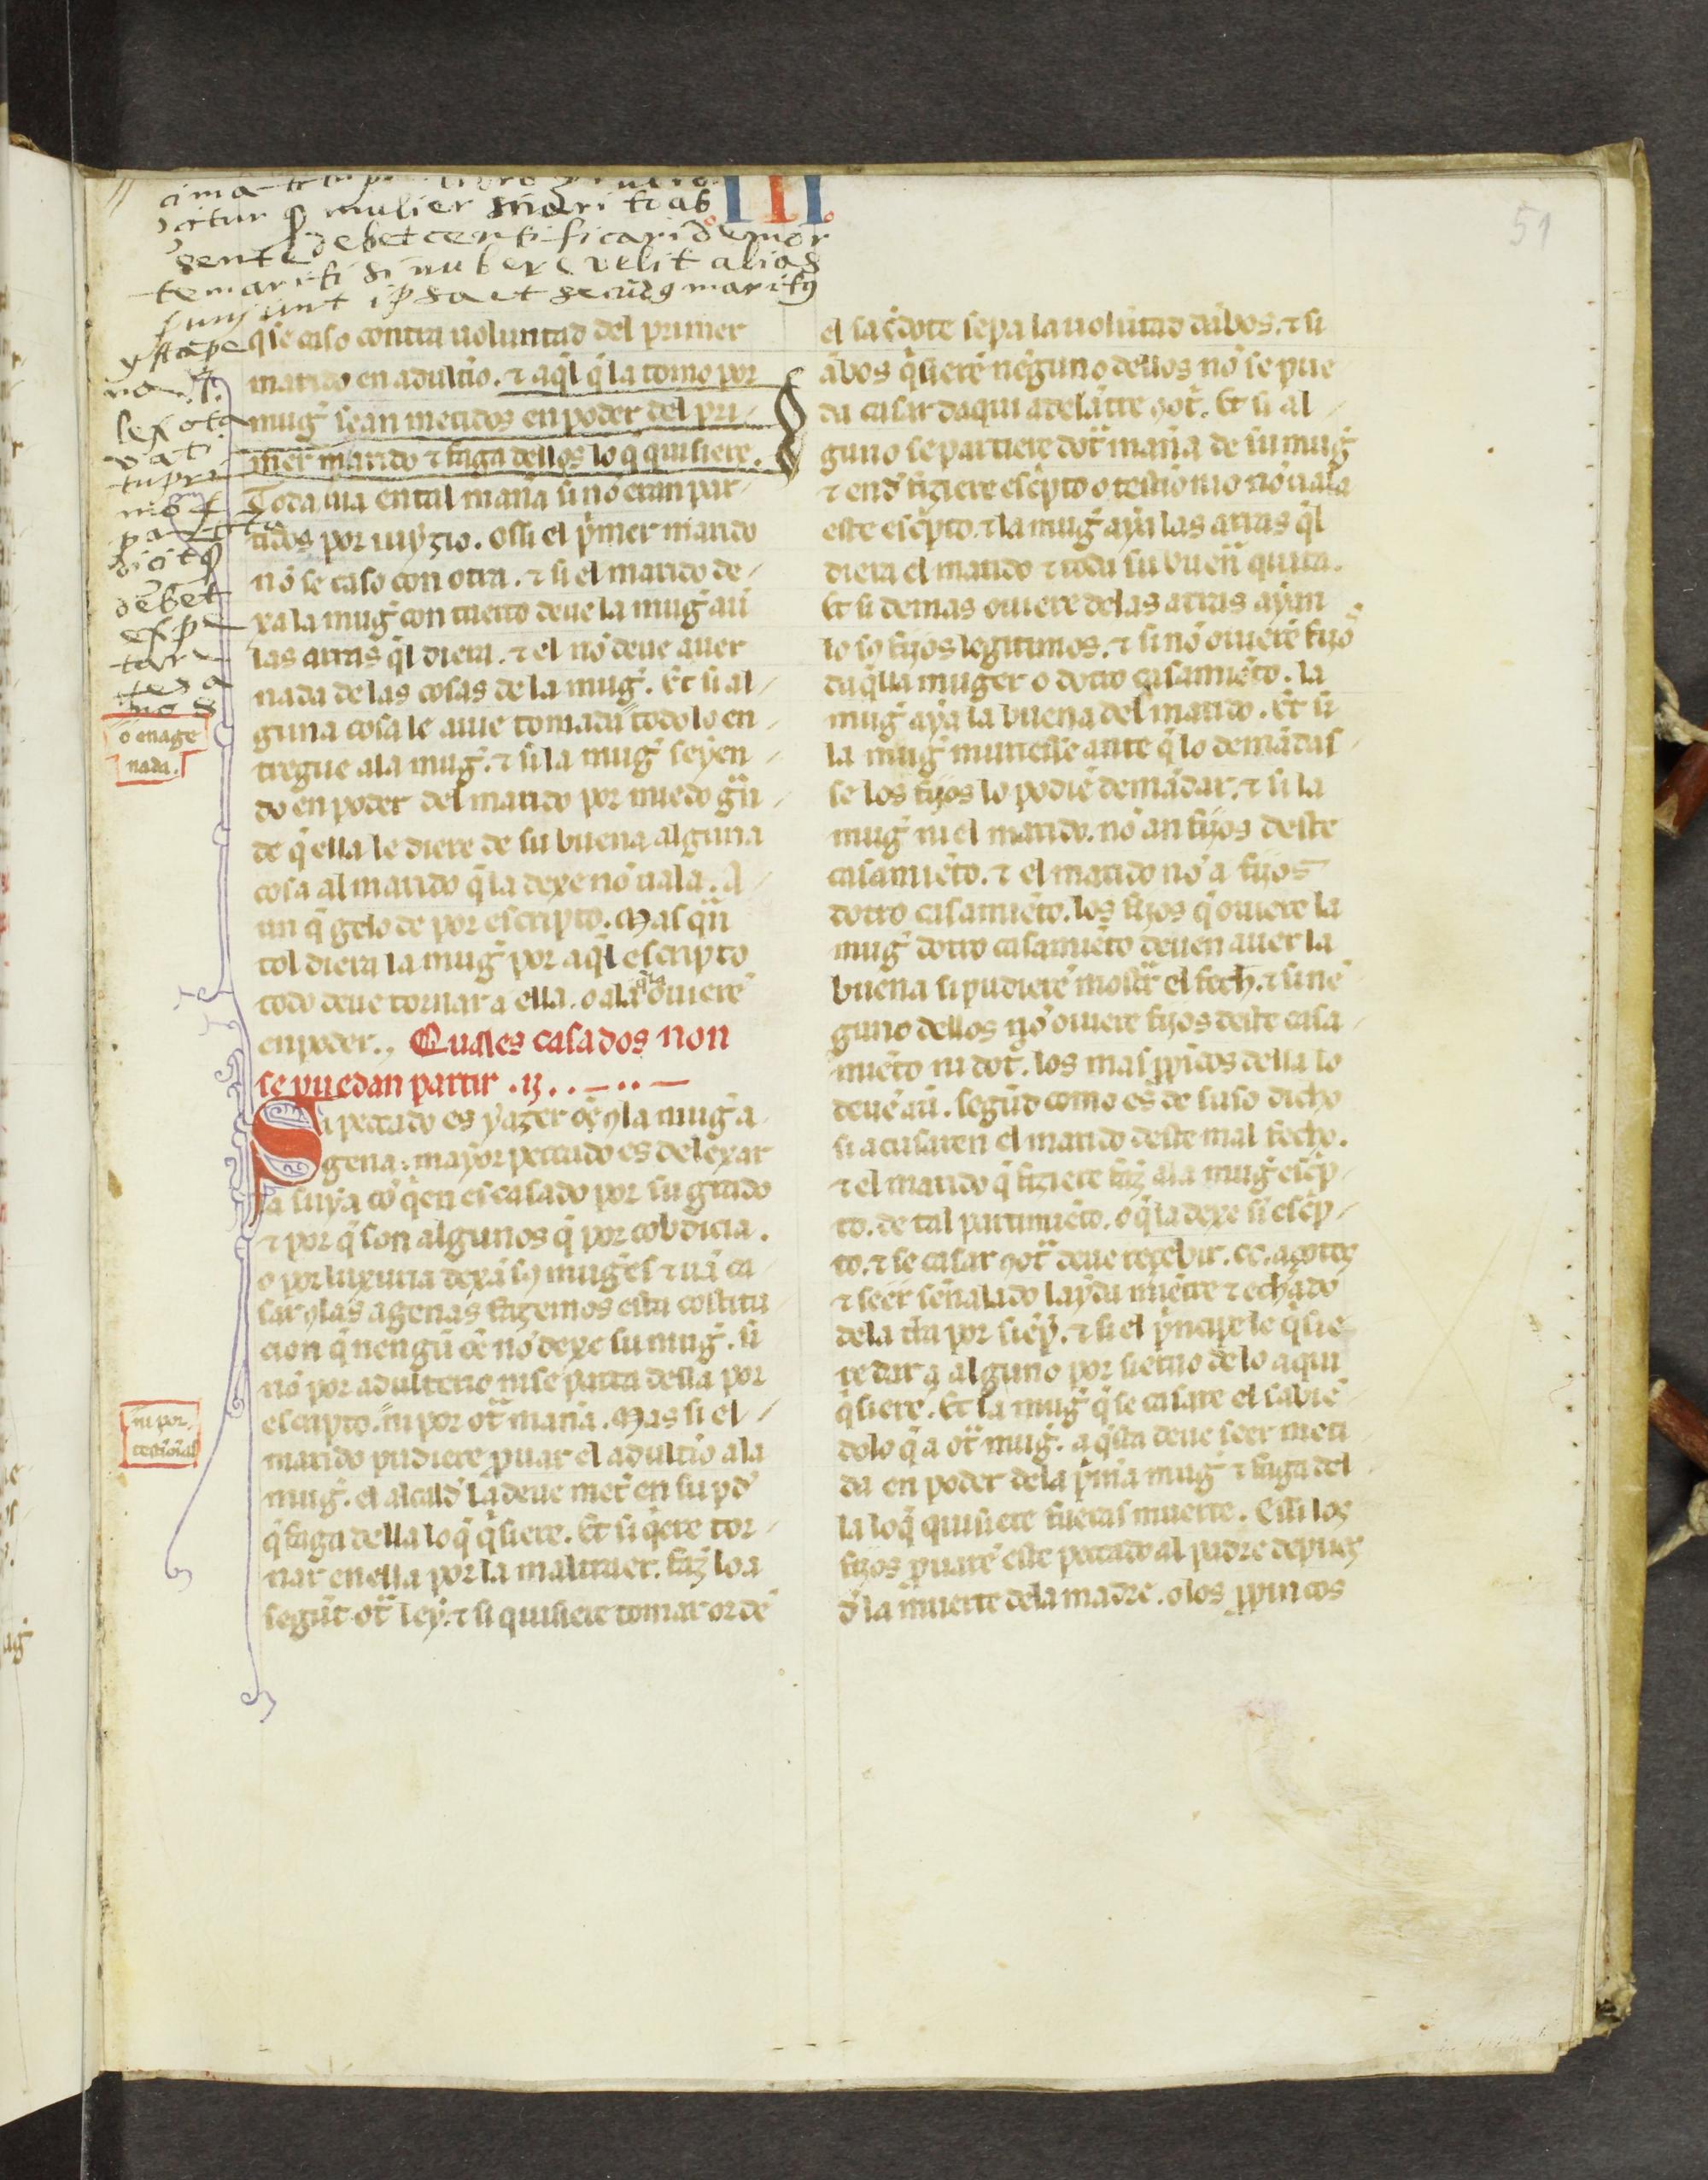 III
51
dicitur q mulier mariti ab
sente debet certificari de mor
te mariti si nubere velit alias
puniunt ipsa et secũdꝰ maritꝰ
q̃ se caso contra uoluntad del primer
marido en adulťio. ⁊ aq̃l q̃ la tomo por
mug̃ sean metidos en poder del pri-
mer marido ⁊ faga dellos lo q̃ quisiere.
Toda uia en tal mañа si nõ eran par-
tidos por iuyzio. o ssi el p̃mer marido
nõ se caso con otra. ⁊ si el marido de-
xa la mug̃ con tuerto deue la mug̃ au̾
las arras q̃l diera. ⁊ el nõ deue auer
nada de las cosas de la mug̃. Et si al-
guna cosa le auie tomada todo lo en-
tregue ala mug̃. ⁊ si la mug̃ seyen-
do en poder del marido por miedo gũ-
de q̃ ella le diere de su buena alguna
cosa al marido q̃ la dexe nõ uala. A-
un q̃ gelo de por escripto. Mas q̃n
tol diera la mug̃ por aq̃l escripto
todo deue tornar a ella. o ala q̃ la ouierẽ
en poder., Quales casados non
se puedan partir .ij..-..-
Si peccado es yazer oẽ ꝯla mug̃ a-
gena: mayor peccado es de lexar
la suya cõ q̃en es casado por su grado
⁊ por q̃ son algunos q̃ por cobdicia.
o por luxuria dexã sꝯ mug̃es ⁊ uã ca-
sar ꝯlas agenas fazemos esta costitu
cion q̃ nengũ oẽ nõ dexe su mug̃. si
nõ por adulterio ni se parta della por
escripto. ni por ot̃ mañа. Mas si el-
marido pudiere prouar el adulťio ala
mug̃. el alcald̃ la deue met̃ en su pod̃
q̃ faga della lo q̃ q̃siere. Et si q̃ere tor-
nar en ella por la maltraer. faz lo a
segũt ot̃ ley. ⁊ si quisiere tomar ordẽ
o enage
nada.
ni por
testimõial
debet
expe
ctare
el sac̾dote sepa la uolũtad dãbos. ⁊ si
ãbos q̃sierẽ nẽguno dellos nõ se pue-
da casar daqui adelãtre ꝯot̃. Et si al-
guno se partiere dot̃ mañа de su mug̃
⁊ end̃ fiziere esc̾pto o testimonio nõ uala
este esc̾pto. ⁊ la mug̃ aya las arras q̃l
diera el marido ⁊ toda su buenã quita.
Et si demas ouiere de las arras ayan
lo so fijos legitimos. ⁊ si nõ ouierẽ fijo
daq̃lla muger o dotro casamiẽto. la
mug̃ aya la buena del marido. Et si
la mug̃ muriesse ante q̃ lo demãdas-
se los fijos lo podiẽ demãdar. ⁊ si la
mug̃ ni el marido. nõ an fijos deste
casamiẽto. ⁊ el marido nõ a fijos
dotro casamiẽto. los fijos q̃ ouiere la
mug̃ dotro casamiẽto deuen auer la
buena si pudierẽ mostr̃ el fech̃. ⁊ si nẽ
guno dellos nõ ouiere fijos deste casa-
miẽto ni dot̃. los mas p̃pĩcos della lo
deuẽ au̾. segũd como es de suso dicho
si acusaren el marido deste mal fecho.
⁊ el marido q̃ fiziere faz̾ ala mug̃ esc̾p-
to. de tal partimiẽto. o q̃ la dexe si esc̾p-
to. ⁊ se casar ꝯot̃ deue reçebir .cc. açotes
⁊ seer señalado layda miẽtre ⁊ echado
dela tr̃a por siẽp̃. ⁊ si el p̃ncipe le q̃sie
re dar a alguno por sieruo de lo a qui
q̃siere. Et la mug̃ q̃ se casare el sabiẽ
dolo q̃ a ot̃ mug̃. aq̃sta deue seer meti
da en poder dela p̃mã mug̃ ⁊ faga del
la lo q̃ quisiere fueras muerte. E ssi los
fijos prouarẽ este peccado al padre depues
d̃ la muerte dela madre. o los p̃pincos